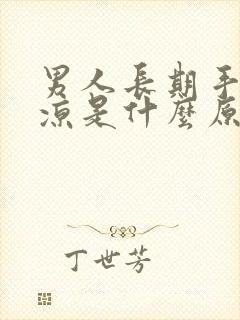 男人長期手
涼是什麼原
丁世芳